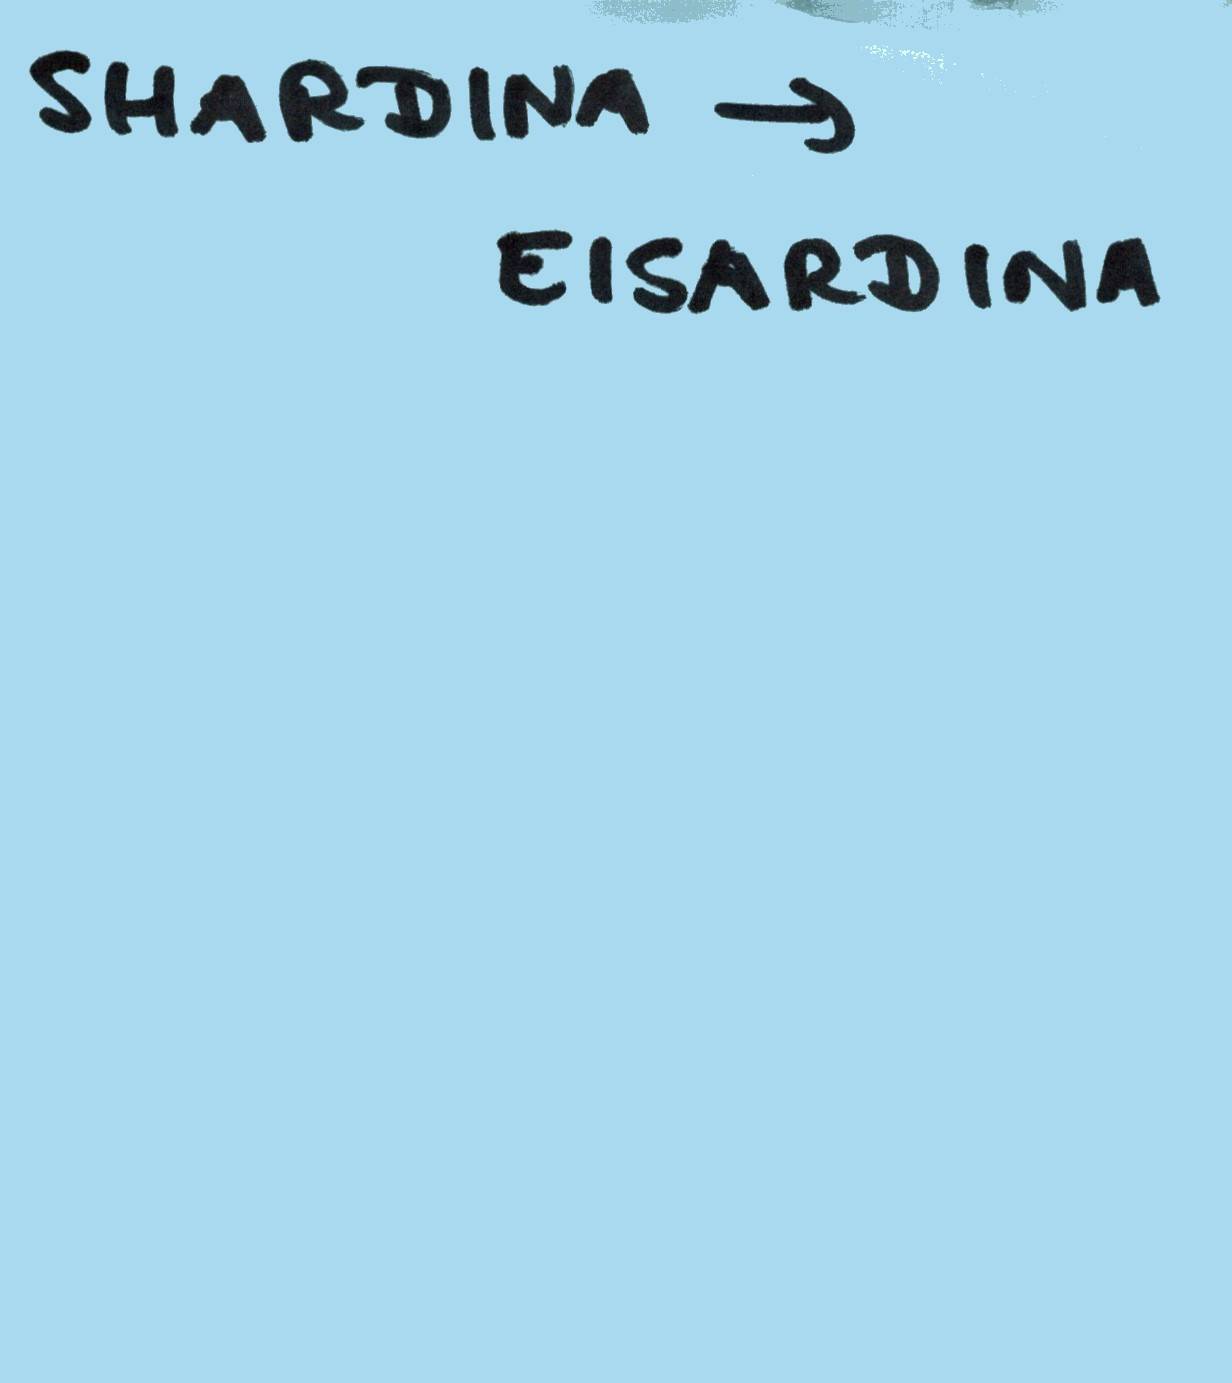 SHARDINA →
EISARDINA